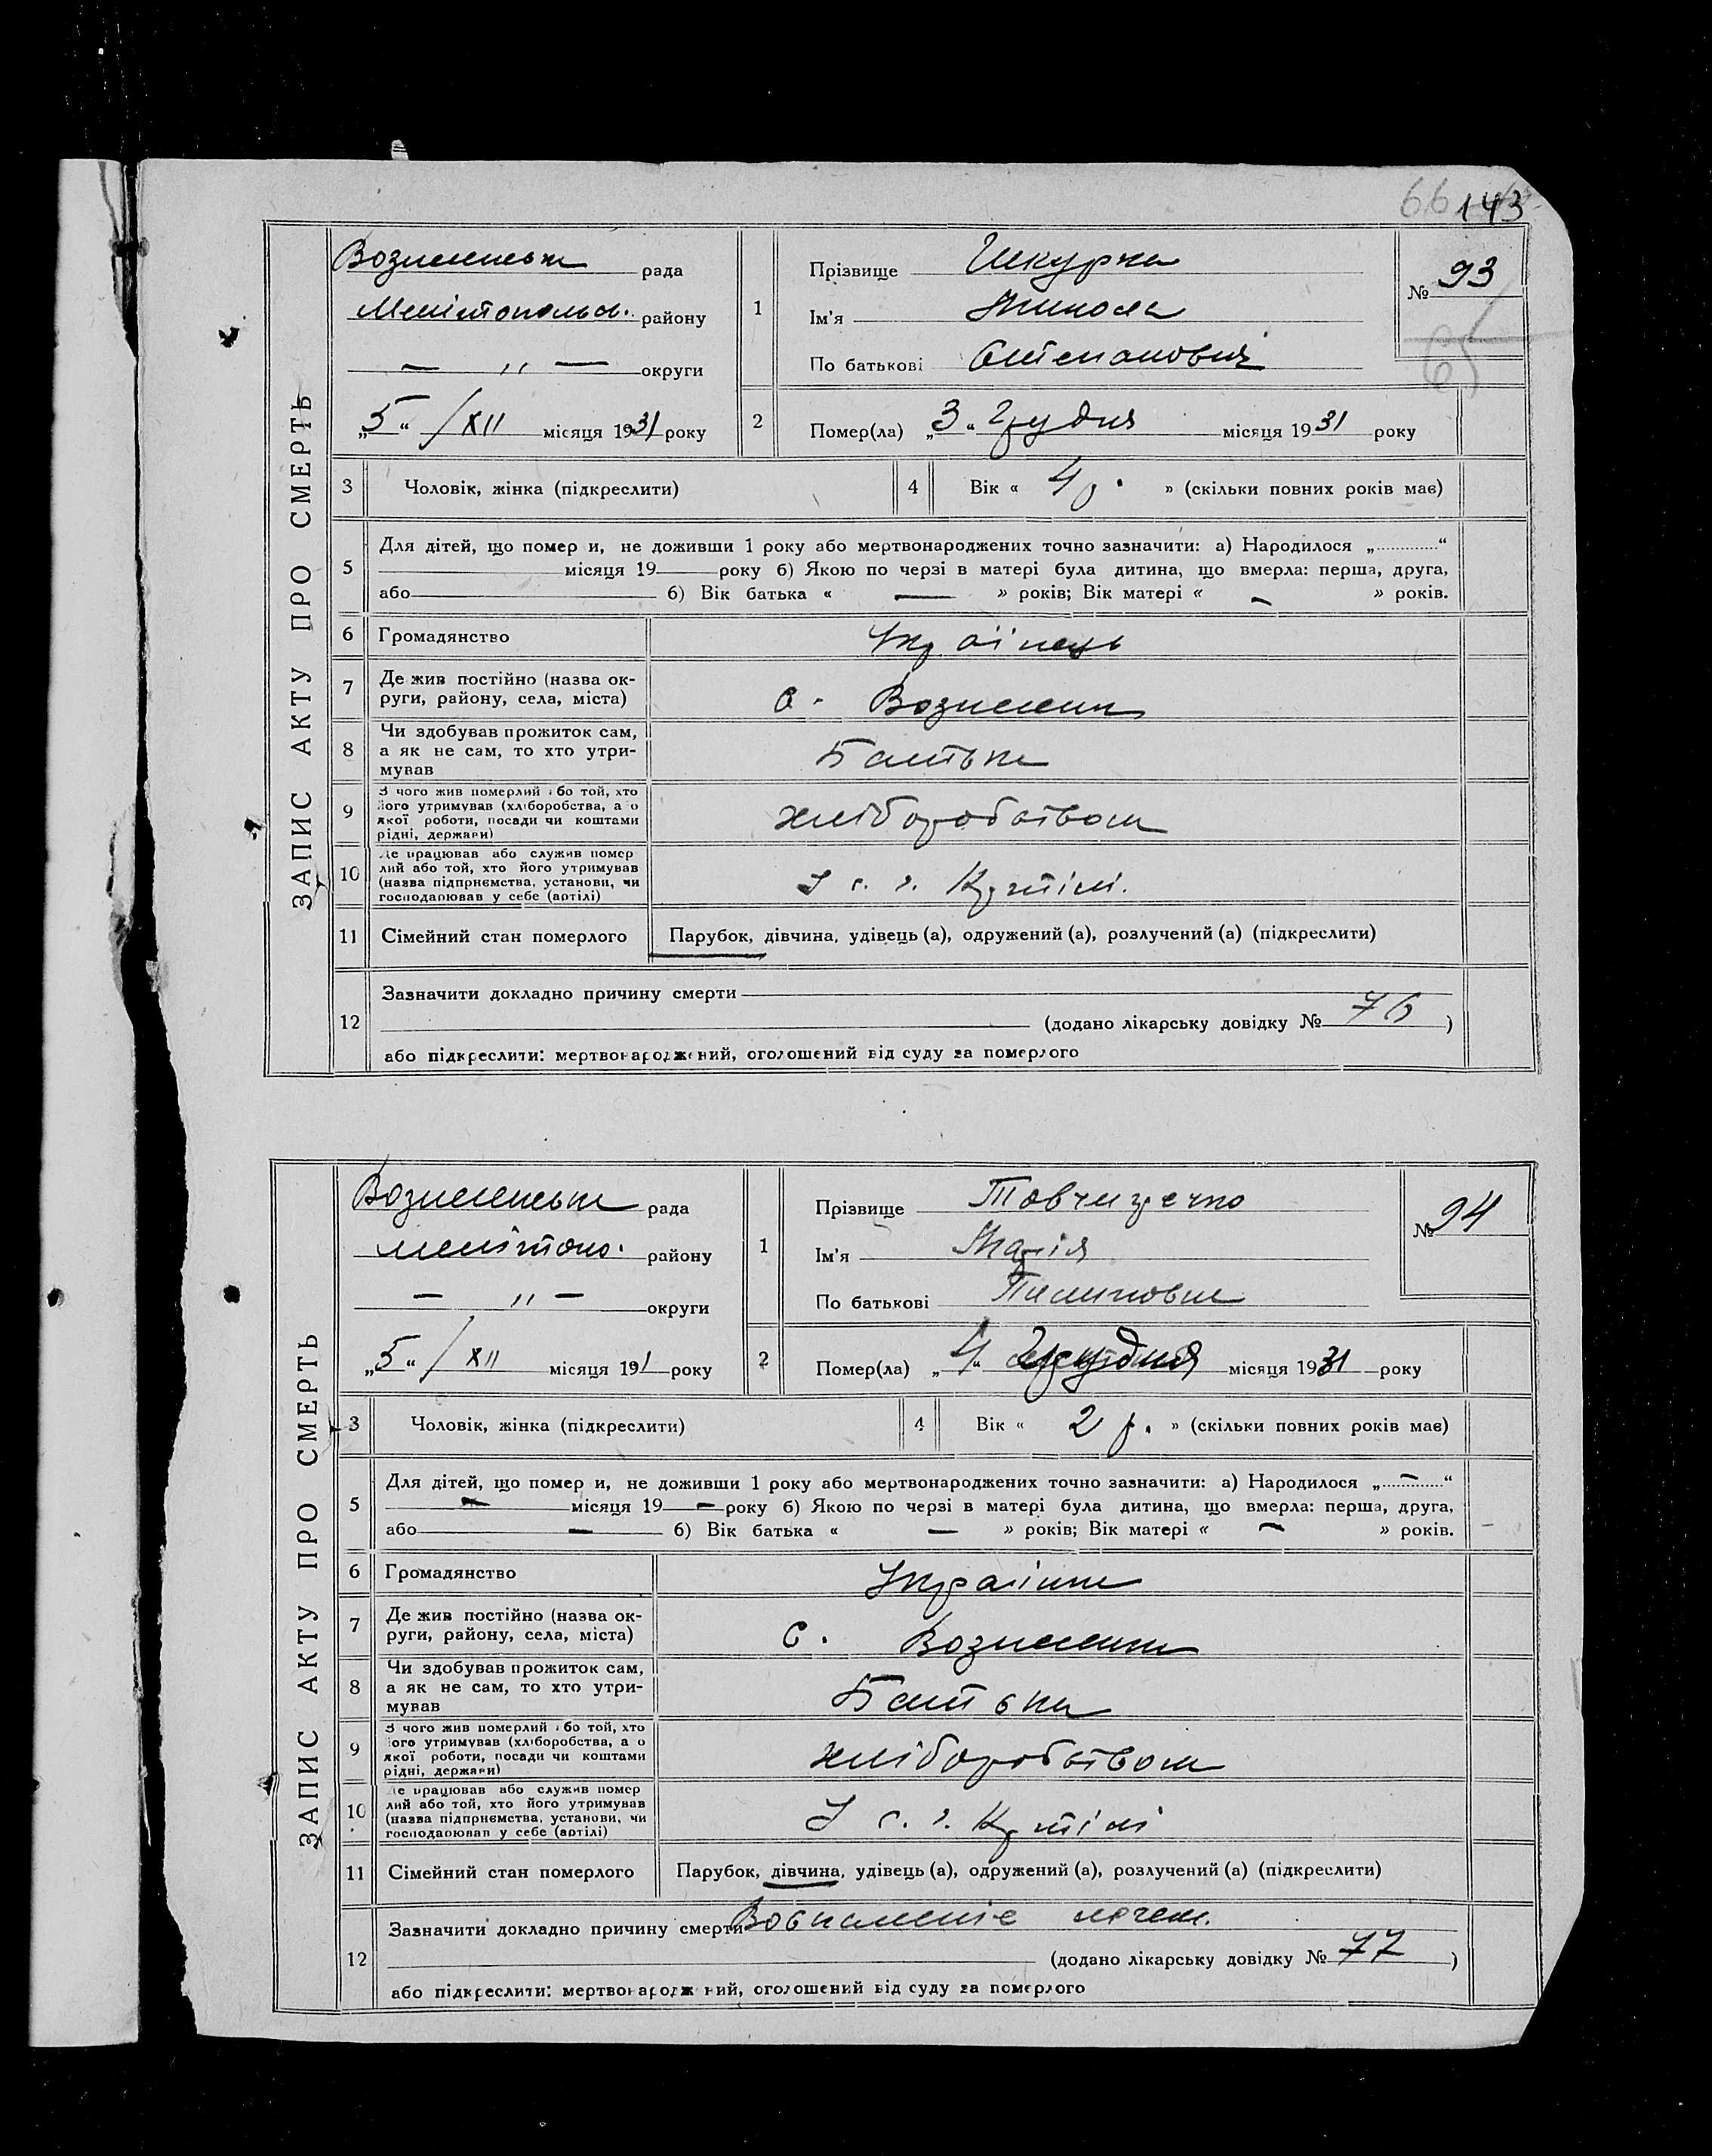 66 143
ЗАПИС АКТУ ПРО СМЕРТЬ
Вознесенська рада
Мелітопольск. району
— „ — округи
„5“ /XII місяця 1931 року
1
Прізвище Шкурка
Ім'я Микола
По батькові Степанович
№ 93
65
2
Помер(ла) „3“ Грудня місяця 1931 року
3 Чоловік, жінка (підкреслити)
4 Вік « 4 р. » (скільки повних років має)
5
Для дітей, що помер и, не доживши 1 року або мертвонароджених точно зазначити: а) Народилося „ “
місяця 19 року б) Якою по черзі в матері була дитина, що вмерла: перша, друга,
або б) Вік батька « — » років; Вік матері « - » років.
6 Громадянство Українець
7 Де жив постійно (назва ок-
руги, району, села, міста) с. Вознесенк
8 Чи здобував прожиток сам,
а як не сам, то хто утри-
мував Батька
9 З чого жив померлий або той, хто
його утримував (хліборобства, а о
якої роботи, посади чи коштами
рідні, держави) хліборобством
10 Де працював або служив помер
лий або той, хто його утримував
(назва підприємства, установи, чи
господарював у себе (артілі) У с. г. Артілі.
11 Сімейний стан померлого Парубок, дівчина, удівець (а), одружений (а), розлучений (а) (підкреслити)
12
Зазначити докладно причину смерти
(додано лікарську довідку № 76 )
або підкреслити: мертвонароджений, оголошений від суду за померлого
ЗАПИС АКТУ ПРО СМЕРТЬ
Вознесенська рада
Мелітопо. району
— „ — округи
„5“ / XII місяця 191 року
1
Прізвище Товчигречко
Ім'я Марія
По батькові Пилиповна
№ 94
2
Помер(ла) „4“ Грудня місяця 1931 року
3 Чоловік, жінка (підкреслити)
4 Вік « 2 р. » (скільки повних років має)
5
Для дітей, що помер и, не доживши 1 року або мертвонароджених точно зазначити: а) Народилося „ — “
— місяця 19 — року б) Якою по черзі в матері була дитина, що вмерла: перша, друга,
або — б) Вік батька « — » років; Вік матері « — » років.
6 Громадянство Українка
7 Де жив постійно (назва ок-
руги, району, села, міста) с. Вознесенк
8 Чи здобував прожиток сам,
а як не сам, то хто утри-
мував Батька
9 З чого жив померлий або той, хто
його утримував (хліборобства, а о
якої роботи, посади чи коштами
рідні, держави) хліборобством
10 Де працював або служив помер
лий або той, хто його утримував
(назва підприємства, установи, чи
господарював у себе (артілі) У с. г. Артілі
11 Сімейний стан померлого Парубок, дівчина, удівець (а), одружений (а), розлучений (а) (підкреслити)
12
Зазначити докладно причину смерти Воспаленіе легем.
(додано лікарську довідку № 77 )
або підкреслити: мертвонароджений, оголошений від суду за померлого